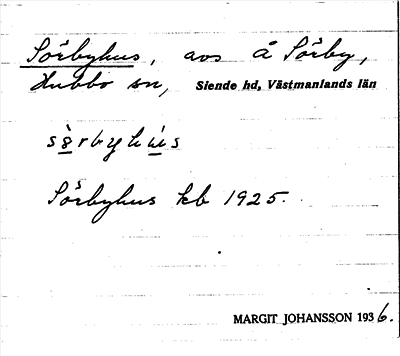 Sörbyhus, avs å Sörby,
Hubbo sn, Siende hd, Västmanlands län
sȍ̲rbyhù̲s
Sörbyhus kb 1925.
MARGIT JOHANSSON 1936.